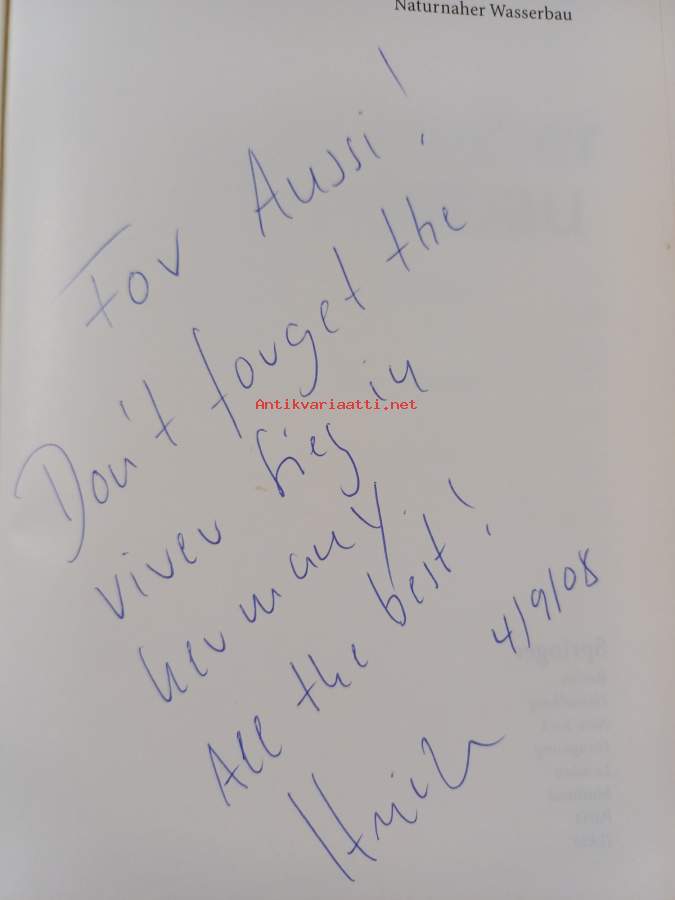 Naturnaher Wasserbau
For Aussi!
Don't forget the
river Sieg in
Germany.
All the best!
4/9/08
Antikvariaatti.net
Springer